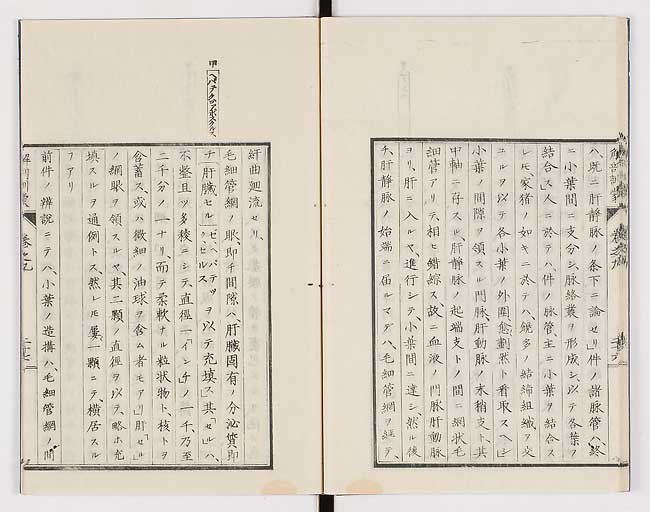 ハ、既ニ肝静脉ノ条下ニ論セリ件ノ諸脉管ハ、終
ニ小葉間ニ支分シ、脉絡叢ヲ形成シ、以テ各葉ヲ
結合ス」人ニ於テハ、件ノ脉管主ニ小葉ヲ結合ス
レモ、家猪ノ如キニ於テハ、饒多ノ結締組織ヲ交
ユルヲ以テ、各小葉ノ外圍愈劃然ト看取スヘシ」
小葉ノ間隙ヲ領スル、門脉肝動脉ノ末梢支ト、其
中軸ニ存スル、肝静脉ノ起端支トノ間ニ、網状毛
細管アリテ、相ヒ錯綜ス、故ニ血液ノ門脉肝動脉
ヨリ、肝ニ入ルヤ、進行シテ小葉間ニ達シ、然ル後
チ、肝静脉ノ始端ニ届ルマデハ、毛細管網ヲ経テ、
甲
紆曲廻流セリ、
毛細管網ノ眼、即チ間隙ハ、肝臓固有ノ分泌管即
チ「肝臓セル」ヲ以テ充填ス」其「セル」ハ、
不整且ツ多稜ニシテ、直徑一「インチ」ノ一千乃至
二千分ノ一ナリ、而テ柔軟ナル粒状物ト、核トヲ
含蓄ス、或ハ微細ノ油球ヲ含ム者モアリ」肝「セル」
ノ網眼ヲ領スルヤ、其二顆ノ直徑ヲ以テ、略ホ充
填スルヲ通例トス、然レモ屢一顆ニテ、横居スル
フアリ
前件ノ辨説ニテハ、小葉ノ造搆ハ、毛細管網ノ間